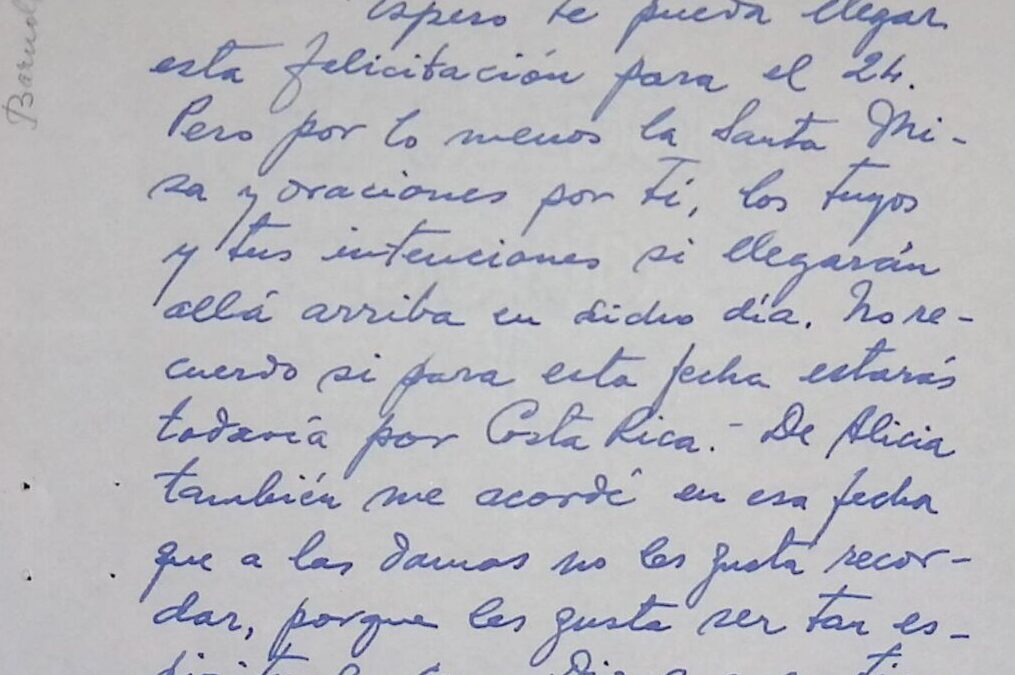 Espero te pueda llegar
esta felicitación para el 24.
Pero por lo menos la Santa Mi-
sa y oraciones por Ti, los tuyos
y tus intenciones si llegarán
allá arriba en dicho día. No re-
cuerdo si para esta fecha estarás
todavía por Costa Rica.- De Alicia
también me acordé en esa fecha
que a las damas no les gusta recor-
dar, porque les gusta ser tan es-